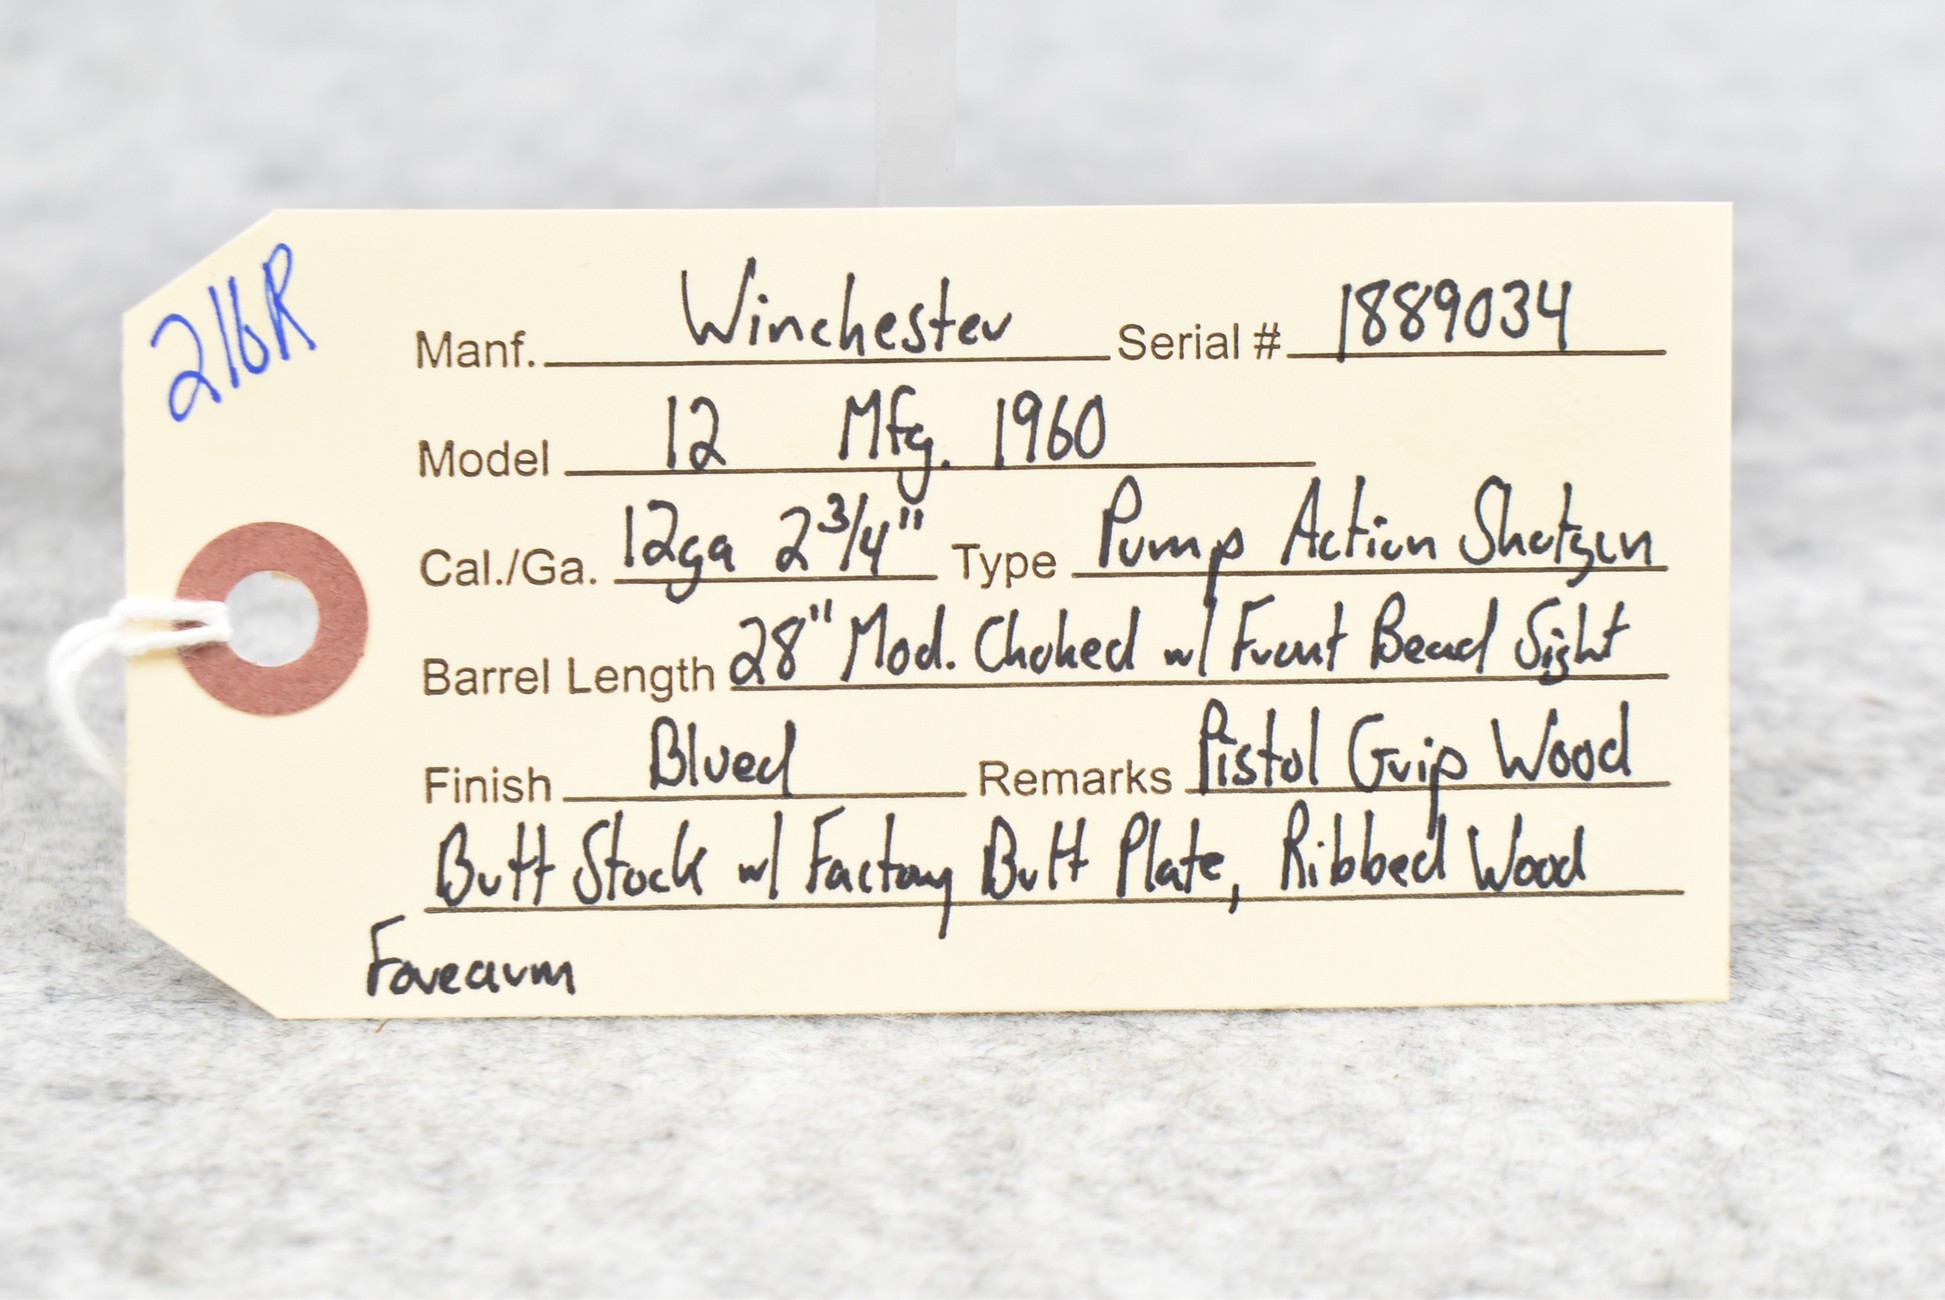 216R
Manf. Winchester Serial # 1889034
Model 12 Mfg. 1960
Cal./Ga. 12ga 2 3/4" Type Pump Action Shotgun
Barrel Length 28" Mod. Choked w/ Front Bead Sight
Finish Blued Remarks Pistol Grip Wood
Butt Stock w/ Factory Butt Plate, Ribbed Wood
Forearm